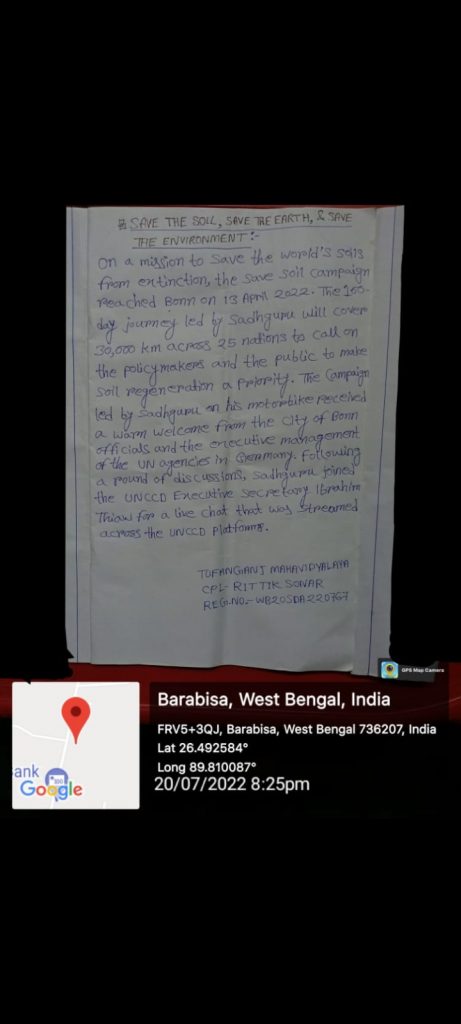 # SAVE THE SOIL, SAVE THE EARTH, & SAVE
THE ENVIRONMENT :-
On a mission to save the world's soils
from extinction, the save soil campaign
reached Bonn on 13 April 2022. The 100-
day journey led by Sadhguru will cover
30,000 km across 25 nations to call on
the policymakers and the public to make
soil regeneration a priority. The Campaign
led by Sadhguru on his motorbike received
a warm welcome from the City of Bonn
officials and the executive management
of the UN agencies in Germany. Following
a round of discussions, Sadhguru joined
the UNCCD Executive Secretary Ibrahim
Thiaw for a live chat that was streamed
across the UNCCD Platforms.
TUFANGANJ MAHAVIDYALAYA
CPL- RITTIK SONAR
REG.NO:- WB20SDA220767
GPS Map Camera
Barabisa, West Bengal, India
FRV5+3QJ, Barabisa, West Bengal 736207, India
Lat 26.492584°
Long 89.810087°
20/07/2022 8:25pm
ank
100
Google